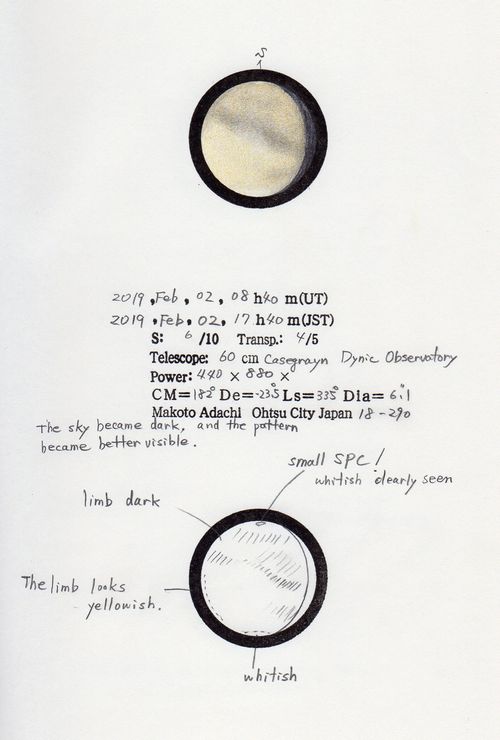 S
2019, Feb, 02, 08 h40 m(UT)
2019, Feb, 02, 17 h40 m(JST)
S: 6 /10 Transp.: 4/5
Telescope: 60 cm Casegrayn Dynic Observatory
Power: 440 × 880 ×
CM=182° De=-23.5 Ls=335° Dia= 6".1
Makoto Adachi Ohtsu City Japan 18-290
The sky became dark, and the pattern
became better visible.
small SPC!
whitish clearly seen
limb dark
The limb looks
yellowish.
whitish